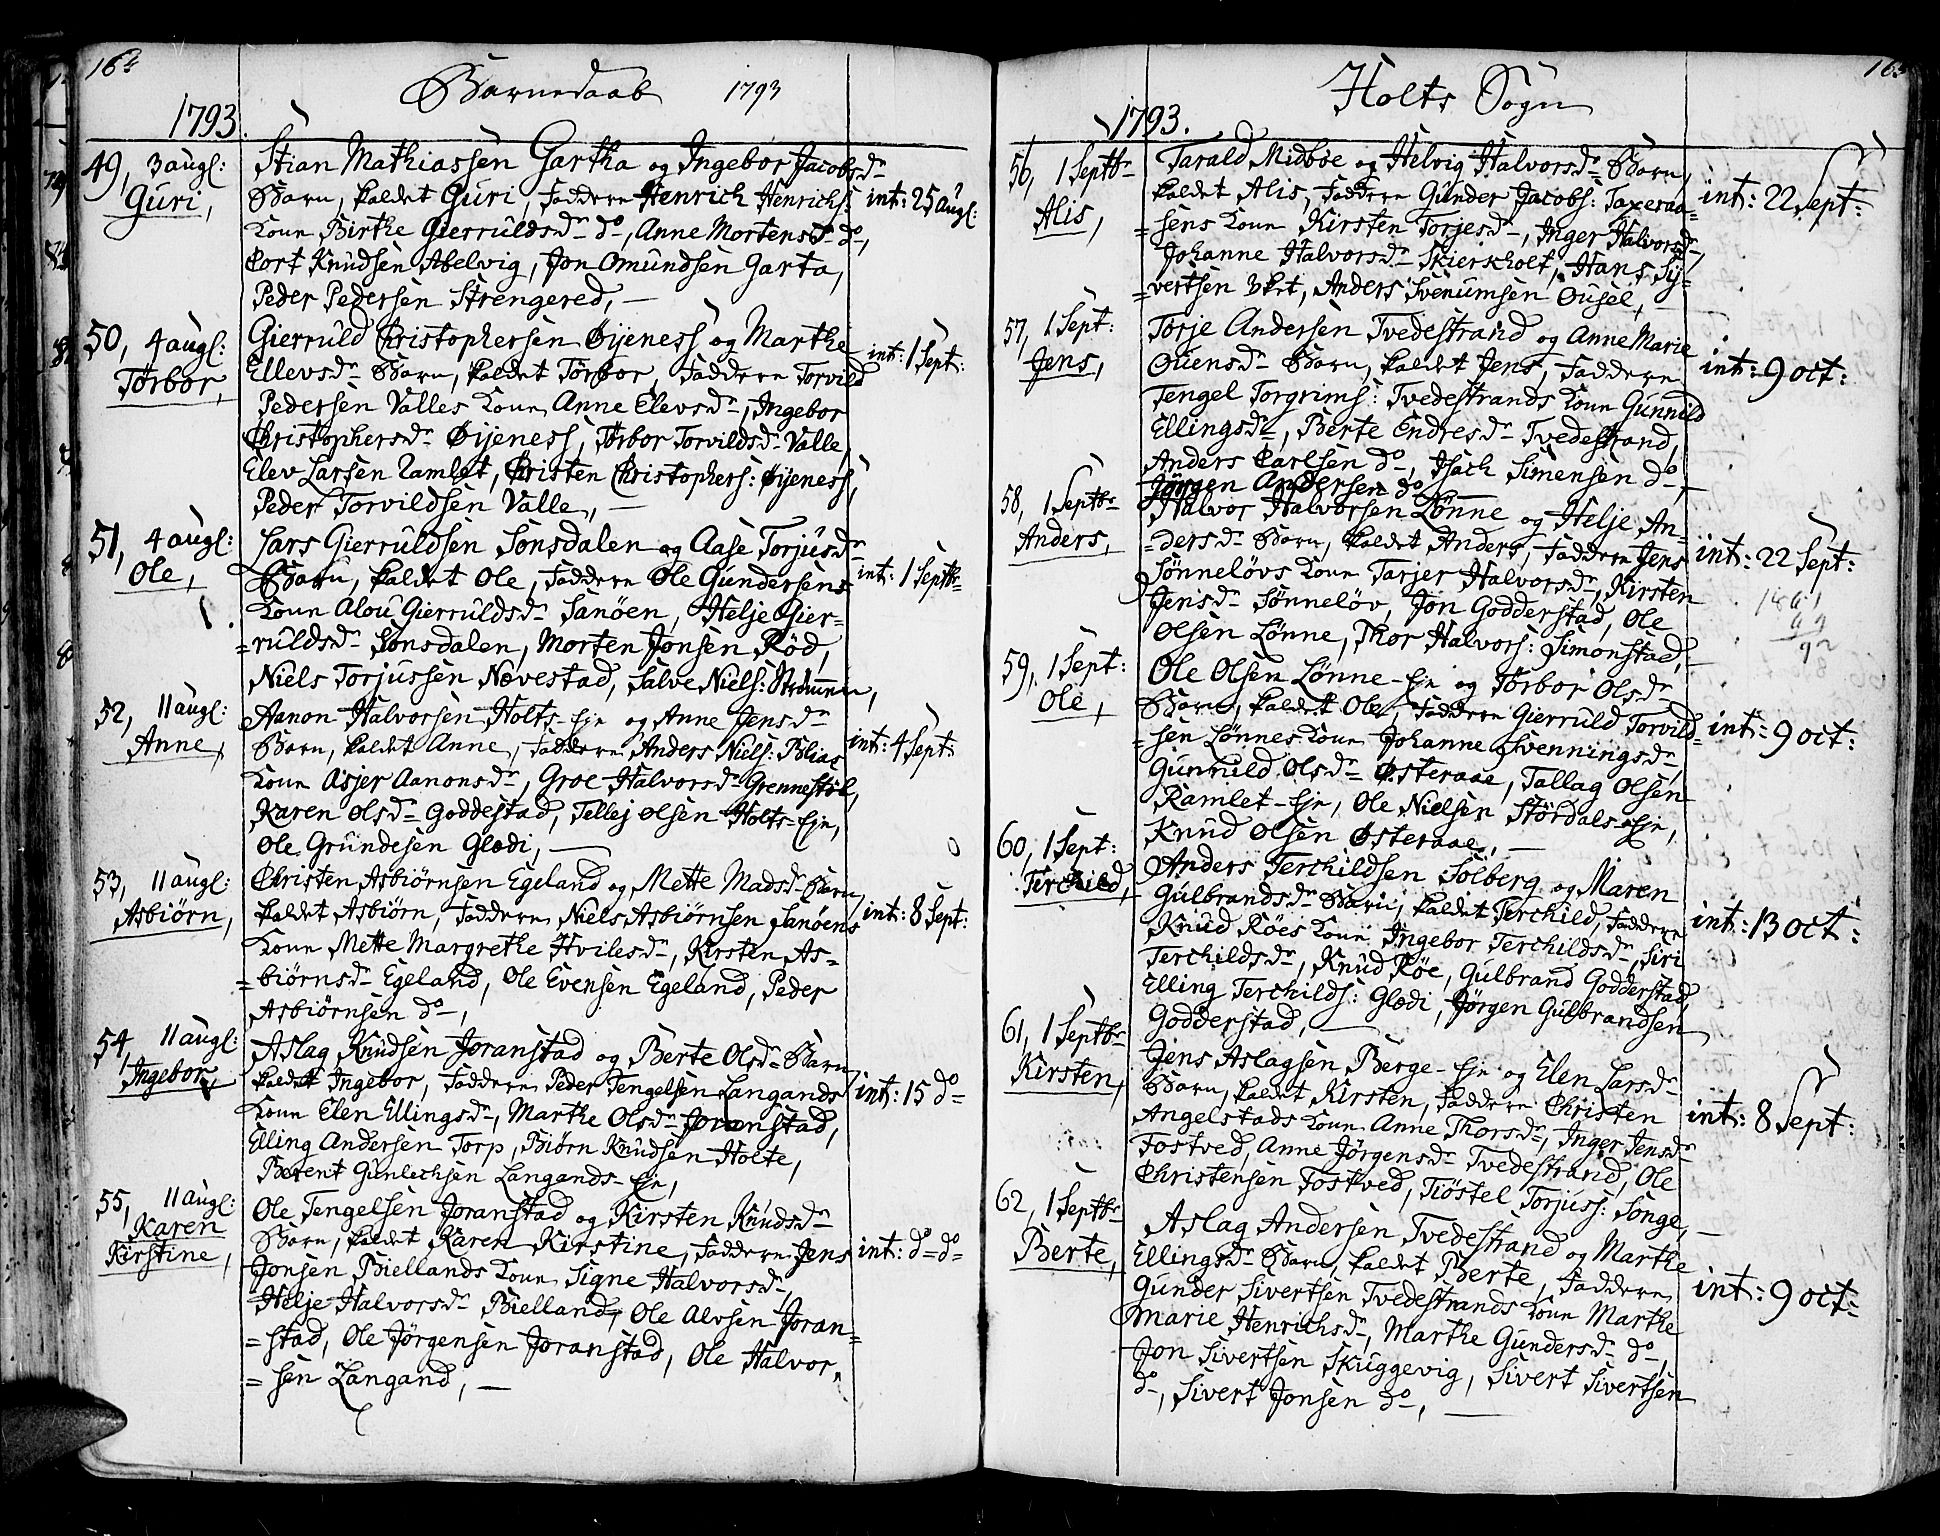 164
Barnedaab 1793
1793.
49, 3 augl:
Guri,
Stian Mathiassen Gartha og Ingebor Jacobsd:
Barn, kaldet Guri, Faddere Henrich Henrichs:
Koun Birthe Gierruldsd: do, Anne Mortensd: do,
Cort Knudsen Abelvig, Jon Omundsen Garta,
Peder Pedersen Strengered, —
int: 25 augl:
50, 4 augl:
Torbor,
Gierruld Christophersen Øÿeness og Marthe
Ellevsd: Barn, kaldet Torbor, Faddere Torvild
Pedersen Valles Koun Anne Elevsd:, Ingebor
Christophersd: Øÿeness, Torbor Torvildsd: Valle,
Elev Larsen Ramlet, Christen Christophers: Øÿeness,
Peder Torvildsen Valle, —
int: 1 Sept:
51, 4 augl:
Ole,
Lars Gierruldsen Sonsdalen og Aase Torjusd:
Barn, kaldet Ole, Faddere Ole Gundersens
Koun Alou Gierruldsd: Sanöen, Helje Gier-
=ruldsd: Sonsdalen, Morten Jonsen Röd,
Niels Torjussen Nævestad, Salve Niels: Strømmen,
int: 1 Septbr
52, 11 augl:
Anne,
Aanon Halvorsen Holts-Eje og Anne Jensd:
Barn, kaldet Anne, Faddere Anders Niels: Blias
Koun Asjer Aanonsd:, Groe Halvorsd: Grennestöl,
Karen Olsd: Goddestad, Tellej Olsen Holts-Eje,
Ole Grundesen Glædi, —
int: 4 Sept:
53, 11 augl:
Asbiörn,
Christen Asbiörnsen Egeland og Mette Madsd: Barn,
kaldet Asbiörn, Faddere Niels Asbiörnsen Sanöens
Koun Mette Margrethe Hvilesd:, Kirsten As-
=biörnsd: Egeland, Ole Evensen Egeland, Peder
Asbiörnsen do,
int: 8 Sept:
54, 11 augl:
Ingebor,
Aslag Knudsen Joranstad og Berte Olsd: Barn,
kaldet Ingebor, Faddere Peder Tengelsen Langands
Koun Elen Ellingsd:, Marthe Olsd: Joranstad,
Elling Andersen Torp, Biörn Knudsen Holte,
Berent Gunlechsen Langands-Eje,
int: 15 do
55, 11 augl:
Karen
Kirstine,
Ole Tengelsen Joranstad og Kirsten Knudsd:
Barn, kaldet Karen Kirstine, Faddere Jens
Jonsen Biellands Koun Signe Halvorsd:,
Helje Halvorsd: Bielland, Ole Alvsen Joran=
=stad, Ole Jörgensen Joranstad, Ole Halvor=
=sen Langand, —
int: do do
165
Holts Sogn
1793.
56, 1 Septbr
Alis,
Tarald Midböe og Helvig Halvorsd: Barn,
kaldet Alis, Faddere Gunder Jacobs: Taxeraa-
=sens Koun Kirsten Torjesd:, Inger Halvorsd:,
Johanne Halvorsd: Skierkholt, Hans Sÿ-
=vertsen, Anders Svenumsen Ousel, —
int: 22 Sept:
57, 1 Sept:
Jens,
Torje Andersen Tvedestrand og Anne Marie
Ouensd: Barn, kaldet Jens, Faddere
Tengel Torgrims: Tvedestrands Koun Gunnild
Ellingsd:, Berte Endresd: Tvedestrand,
Anders Carlsen do, Isach Simensen do,
Jörgen Andersen do
int: 9 oct:
58, 1 Septbr
Anders,
Halvor Halvorsen Lönne og Helje An-
=dersd: Barn, kaldet Anders, Faddere Jens
Sönnelövs Koun Tarjer Halvorsd:, Kirsten
Jensd: Sönnelöv, Jon Godderstad, Ole
Olsen Lönne, Thor Halvors: Simonstad, —
int: 22 Sept:
59, 1 Sept:
Ole,
Ole Olsen Lönne-Eje og Torbor Olsd:
Barn, kaldet Ole, Faddere Gierruld Torvild=
=sen Lönnes Koun Johanne Svenningsd:,
Gunnild Olsd: Østeraae, Tallag Olsen
Ramlet-Eje, Ole Nielsen Stördals-Eje,
Knud Olsen Østeraae, —
int: 9 oct:
60, 1 Sept:
Terchild,
Anders Terchildsen Solberg og Maren
Gulbrandsd: Barn, kaldet Terchild, Faddere
Knud Röes Koun Ingebor Terchildsd:, Siri
Terchildsd:, Knud Röe, Gulbrand Godderstad,
Elling Terchilds: Glædi, Jörgen Gulbrandsen
Godderstad, —
int: 13 oct:
61, 1 Septbr
Kirsten,
Jens Aslagsen Berge-Eje og Elen Larsd:
Barn, kaldet Kirsten, Faddere Christen
Angelstads Koun Anne Thorsd:, Inger Jensd:
Fostved, Anne Jörgensd: Tvedestrand, Ole
Christensen Fostved, Tiöstel Torjuss: Songe, —
int: 8 Sept:
62, 1 Septbr
Berte,
Aslag Andersen Tvedestrand og Marthe
Ellingsd: Barn, kaldet Berte, Faddere
Gunder Sivertsen Tvedestrands Koun Marthe
Marie Henrichsd:, Marthe Gundersd: do,
Jon Sivertsen Skuggevig, Sivert Sivertsen
do, Sivert Jonsen do, —
int: 9 oct: